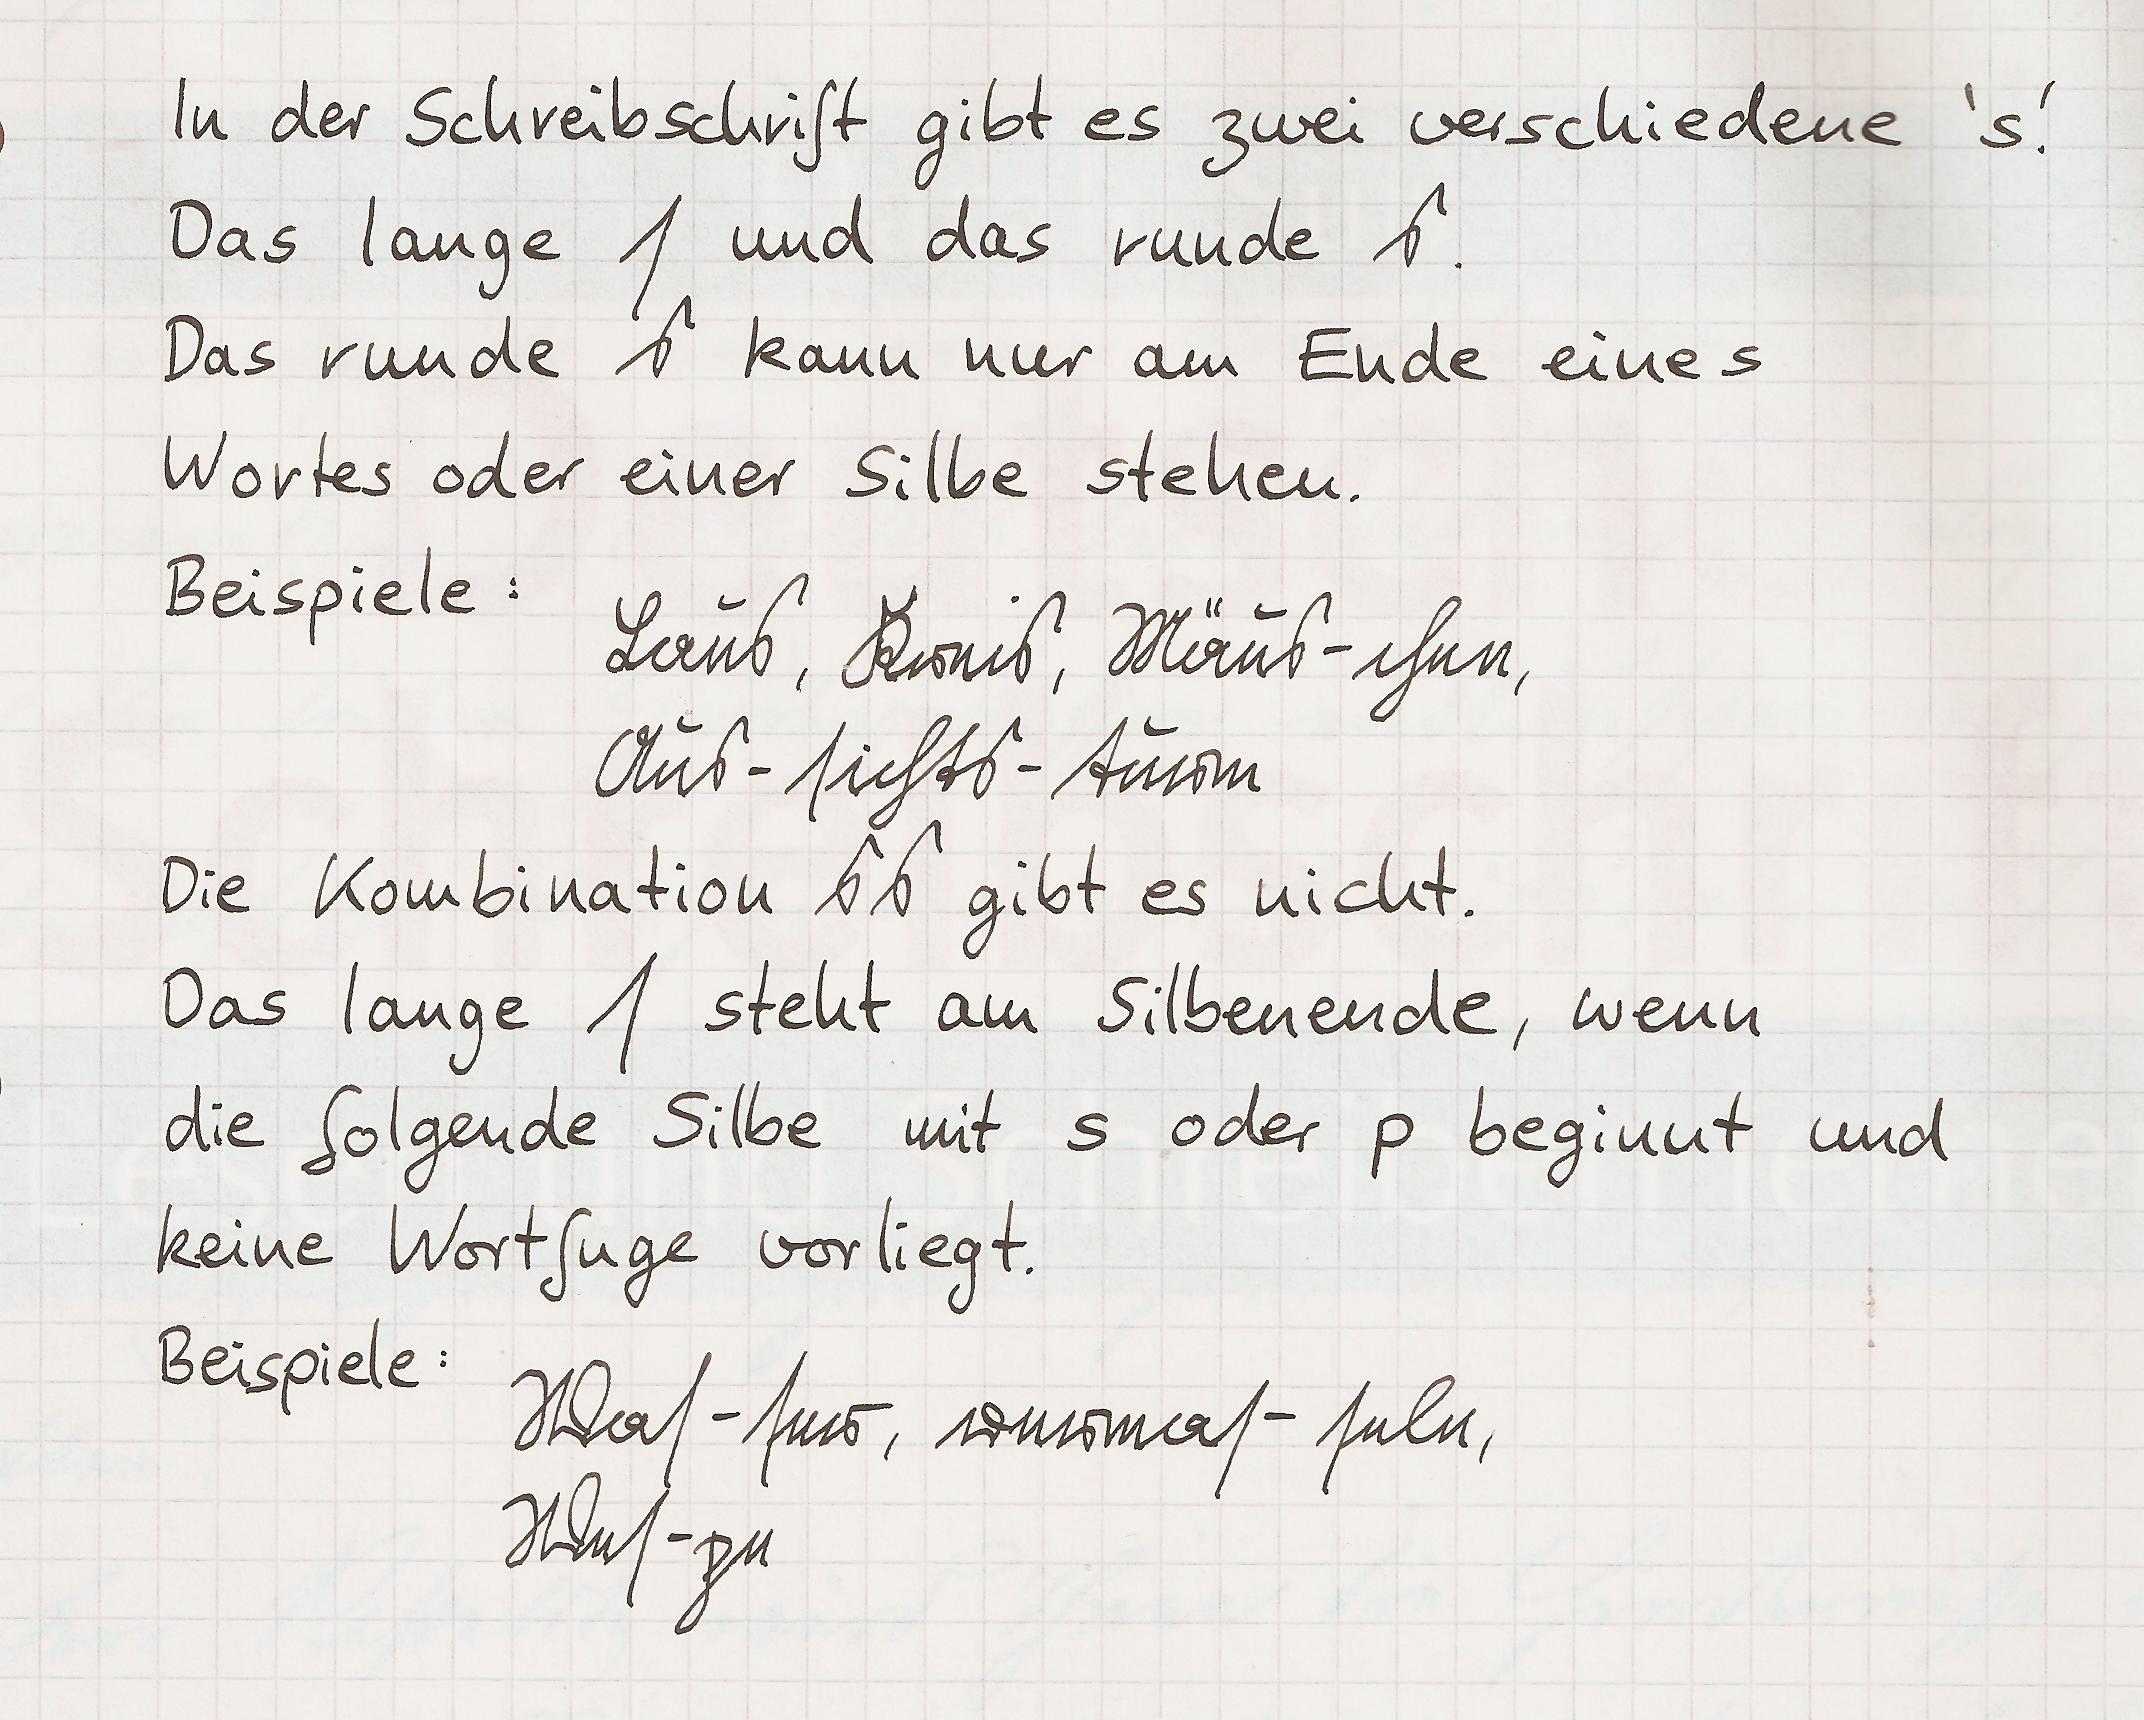 In der Schreibschrift gibt es zwei verschiedene 's'.
Das lange ſ und das runde s.
Das runde s kann nur am Ende eines
Wortes oder einer Silbe stehen.
Beispiele: Laus, Kreis, Mäus-chen,
Aus-ſichts-turm
Die Kombination ss gibt es nicht.
Das lange ſ steht am Silbenende, wenn
die folgende Silbe mit s oder p beginnt und
keine Wortfuge vorliegt.
Beispiele: Waſ-ſer, vermaſ-ſeln,
Weſ-pe